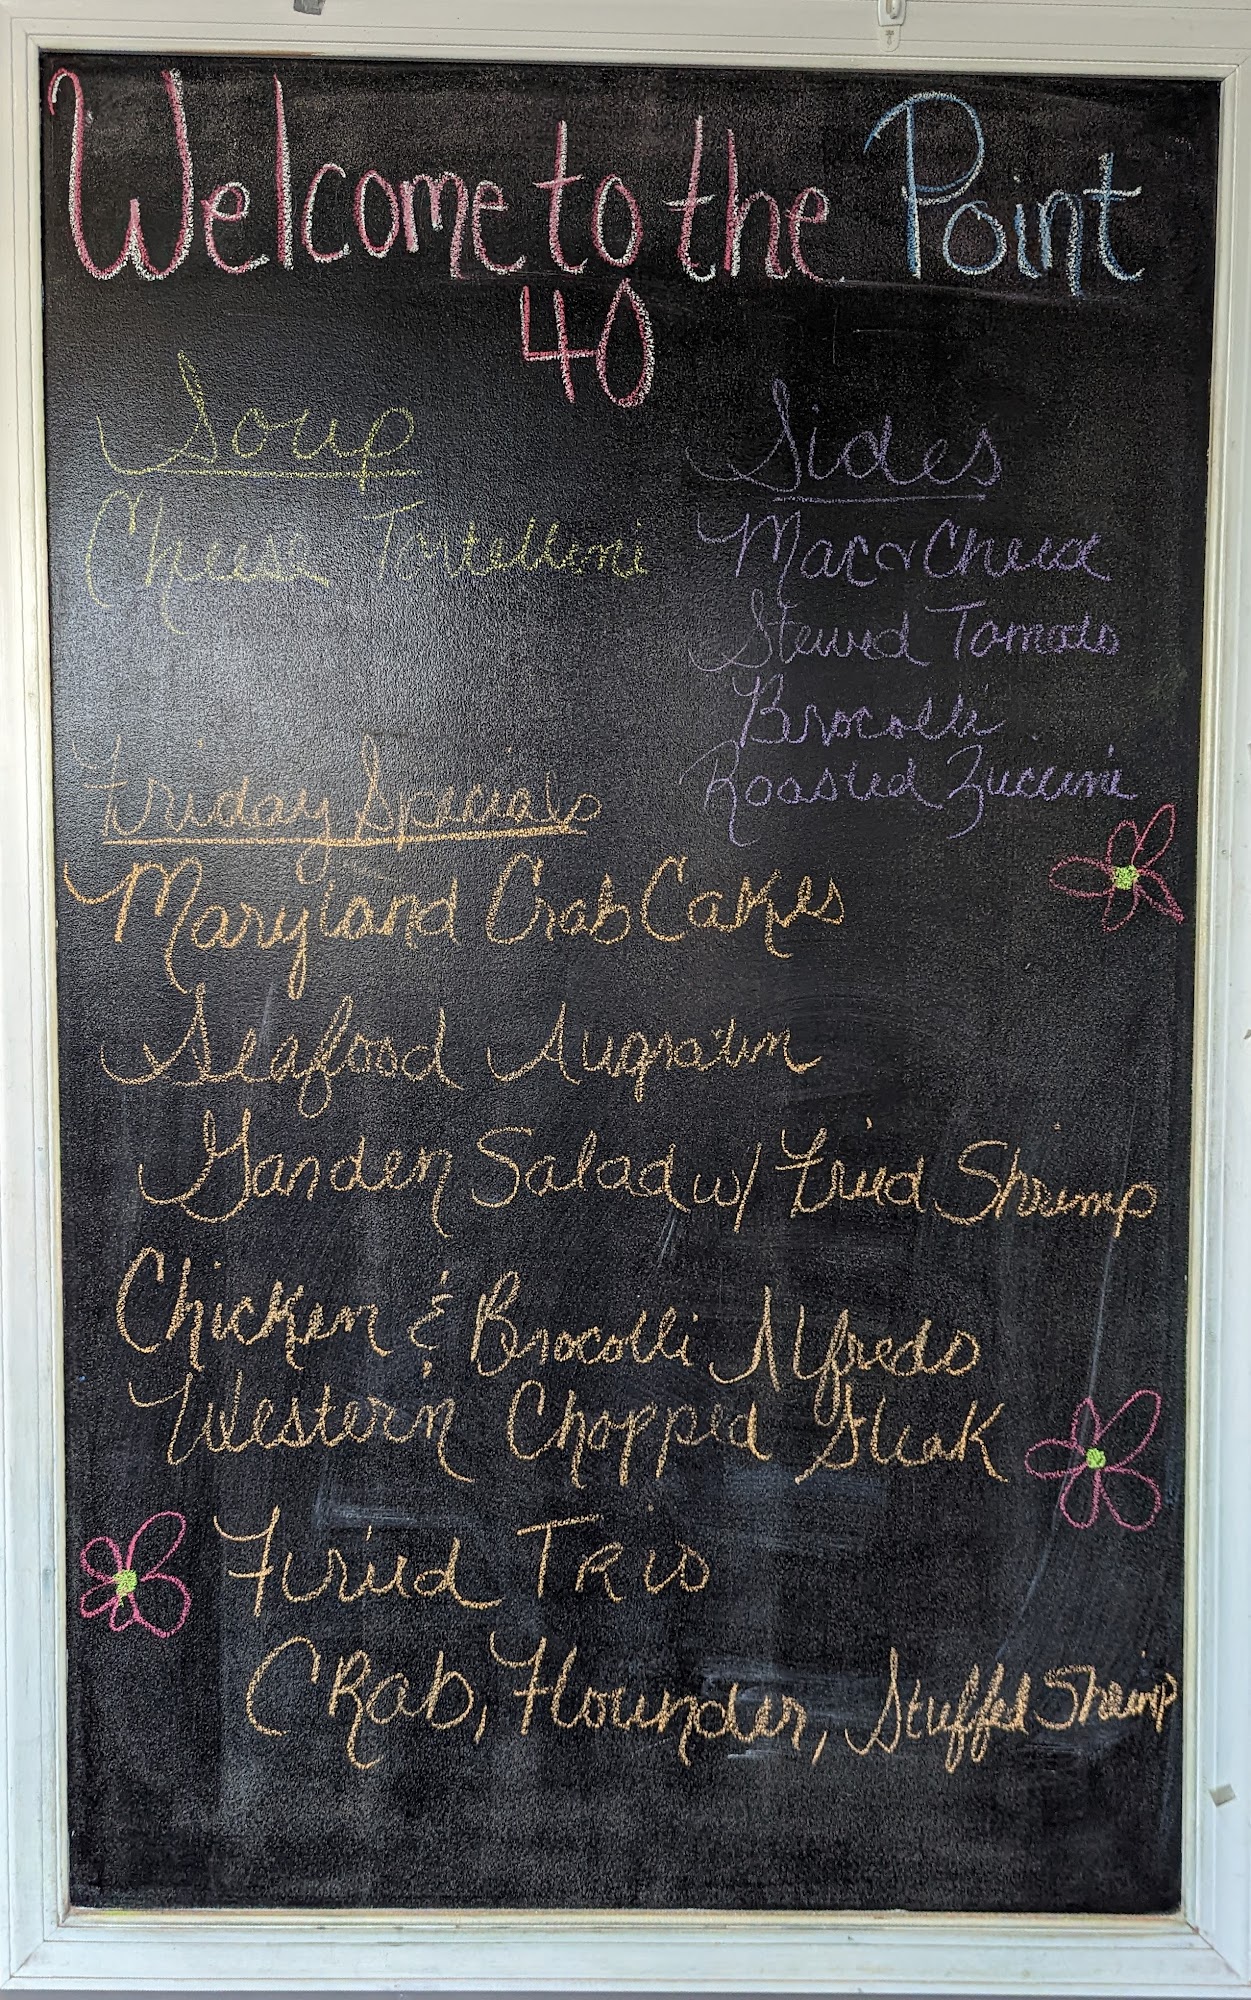 Welcome to the Point
40
Soup
Cheese Tortellini
Sides
Mac & Cheese
Stewed Tomato
Brocolli
Roasted Zuccini
Friday Specials
Maryland Crab Cakes
Seafood Augratin
Garden Salad w/ Fried Shrimp
Chicken & Brocolli Alfredo
Western Chopped Steak
Fried Trio
Crab, Flounder, Stuffed Shrimp